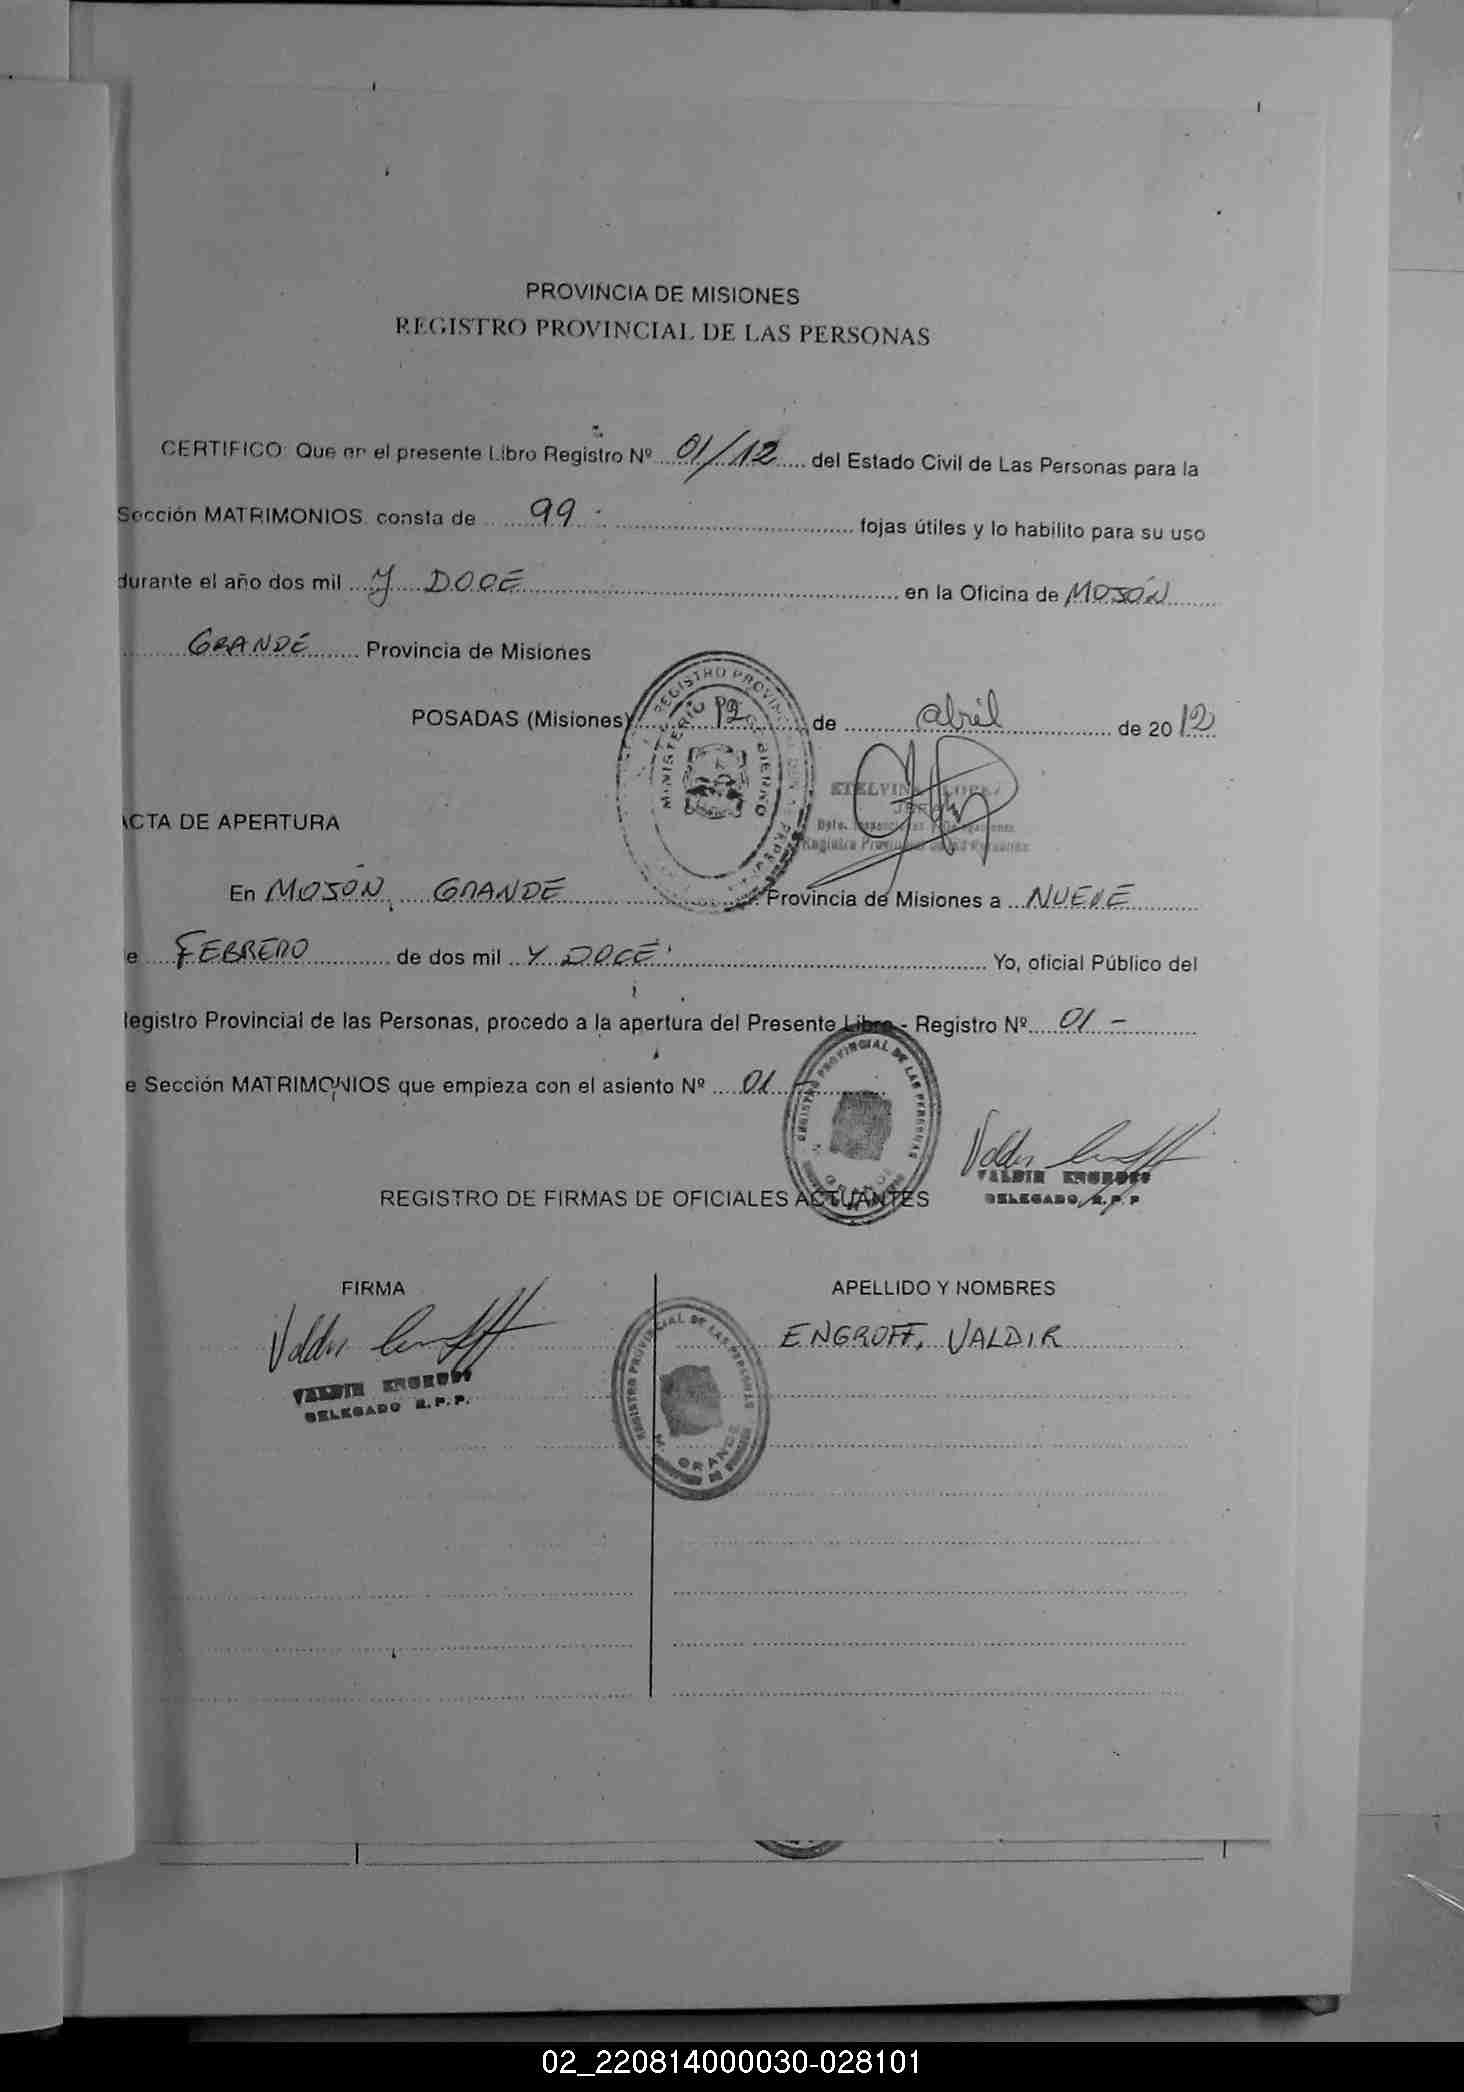 PROVINCIA DE MISIONES
REGISTRO PROVINCIAL DE LAS PERSONAS
CERTIFICO: Que en el presente Libro Registro Nº 01/12 del Estado Civil de Las Personas para la
Sección MATRIMONIOS, consta de 99 fojas útiles y lo habilito para su uso
durante el año dos mil Y DOCE en la Oficina de MOJÓN
GRANDE Provincia de Misiones
POSADAS (Misiones) 12 de abril de 2012
REGISTRO PROVINCIAL
MINISTERIO DE GOBIERNO
ETELVINA LOPEZ
JEFA
Registro Provincial de las Personas
ACTA DE APERTURA
En MOJÓN GRANDE Provincia de Misiones a NUEVE
e FEBRERO de dos mil Y DOCE Yo, oficial Público del
Registro Provincial de las Personas, procedo a la apertura del Presente Libro - Registro Nº 01 -
e Sección MATRIMONIOS que empieza con el asiento Nº 01 -
REGISTRO PROVINCIAL DE LAS PERSONAS
M. GRANDE
VALDIR ENGROFF
DELEGADO R.P.P
REGISTRO DE FIRMAS DE OFICIALES ACTUANTES
FIRMA APELLIDO Y NOMBRES
ENGROFF, VALDIR
VALDIR ENGROFF
DELEGADO R.P.P.
REGISTRO PROVINCIAL DE LAS PERSONAS
M. GRANDE
02_220814000030-028101